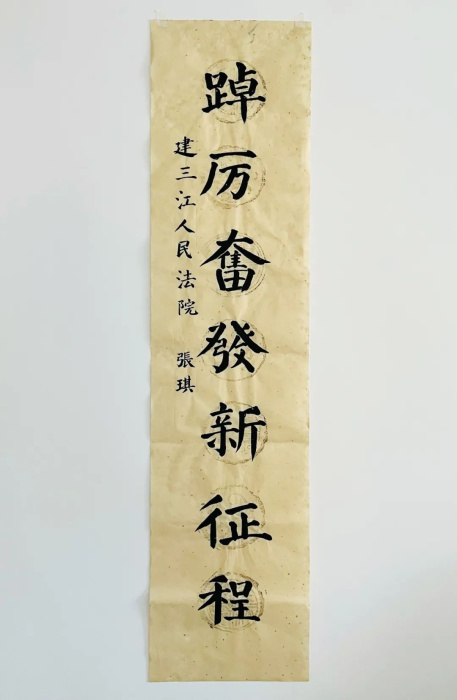 踔厉奮發新征程
建三江人民法院 張琪